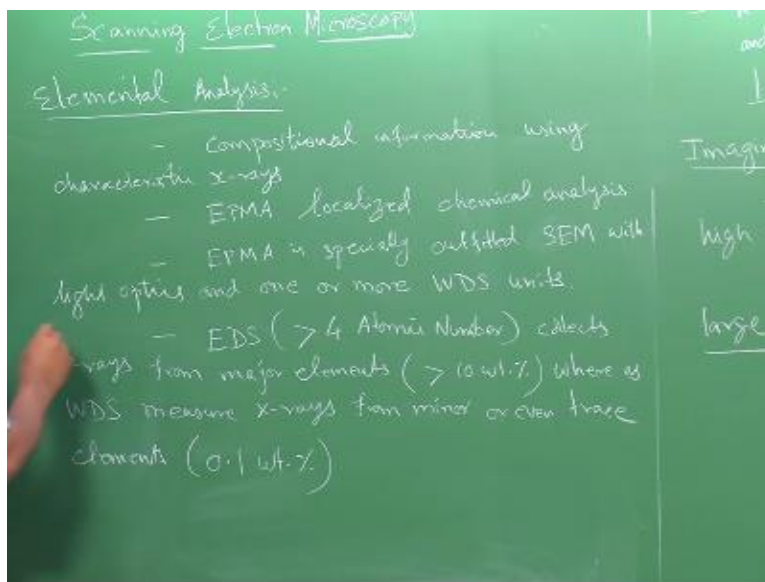 Scanning Electron Microscopy
Elemental Analysis:-
- Compositional information using
characteristic x-rays
- EPMA localized chemical analysis
- EPMA is specially outfitted SEM with
light optics and one or more WDS units.
- EDS (> 4 Atomic Number) collects
x-rays from major elements (> 10 wt.%) where as
WDS measure x-rays from minor or even trace
elements (0.1 wt.%)
and
Imagin
high
large